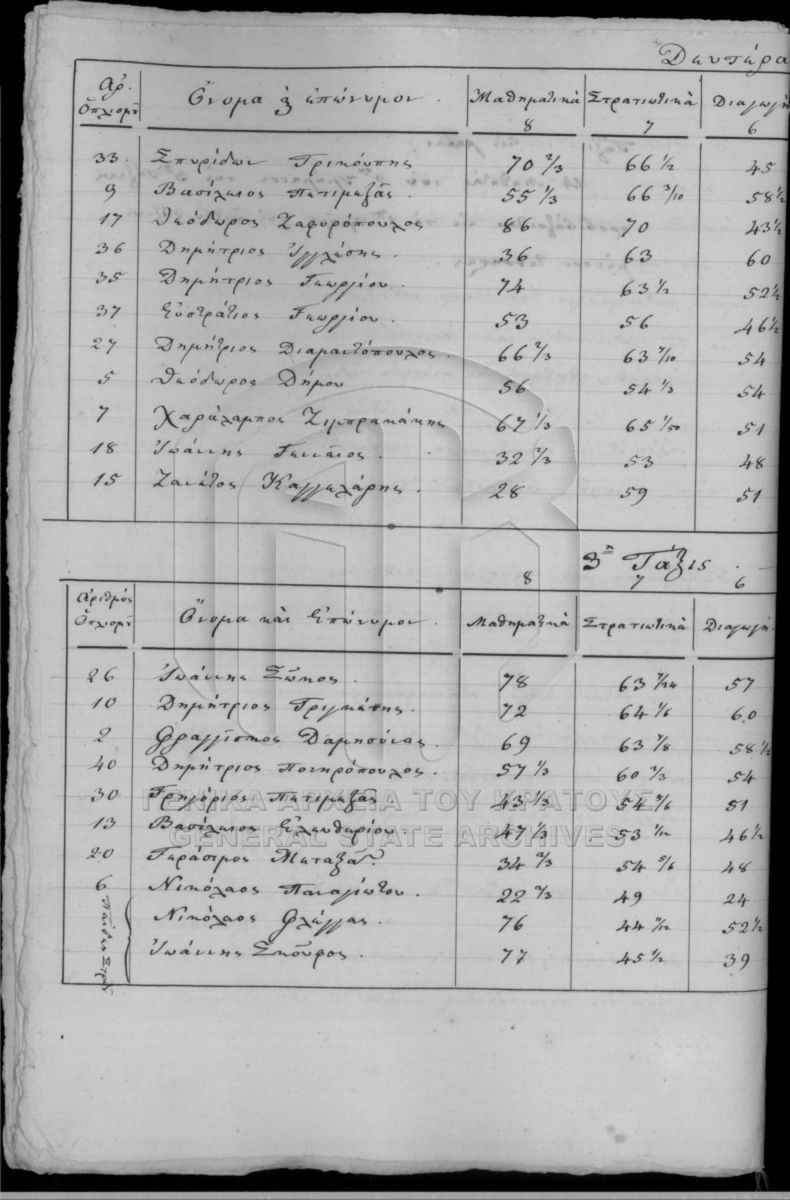 Δευτέρα
Αρ. Ὁπλισμῦ Ὄνομα ἐπώνυμον. Μαθηματικὰ 8 Στρατιωτικὰ 7 Διαγωγὴ 6
33. Σπυρίδων Τρικούπης 70 2/3 66 1/2 45
9 Βασίλειος Πετιμεζᾶς. 55 1/3 66 3/10 58 1/2
17 Θεόδωρος Ζαφυρόπουλος 86 70 43 1/2
36 Δημήτριος Ἰγγλέσης. 36 63 60
35 Δημήτριος Γεωργίου. 74 63 1/2 52 1/2
37 Εὐστράτιος Γεωργίου. 53 56 46 1/2
27 Δημήτριος Διαμαντόπουλος. 66 2/3 54
5 Θεόδωρος Δήμου 56 54 1/3 54
7 Χαράλαμπος Ζιμπρακάκης 67 1/3 51
18 Ἰωάννης Γενναῖος. 32 2/3 53 48
15 Ζανέτος Καγγελάρης. 28 59 51
3η Τάξις
8 7 6
Ἀριθμός Ὁπλισμῦ Ὄνομα καὶ Ἐπώνυμον. Μαθηματικὰ Στρατιωτικὰ Διαγωγὴ
26 Ἰωάννης Σῶκος. 78 57
10 Δημήτριος Γριγκέτης. 72 64 1/6 60
2 Φραγγῖσκος 69 63 7/8 58 1/2
40 Δημήτριος Πονηρόπουλος. 57 1/3 60 2/3 54
30 Γρηγόριος Πετιμεζᾶς 43 1/3 54 51
13 Βασίλειος Ἐλευθερίου. 47 1/3 46 1/2
20 Γεράσιμος Μεταξᾶς. 34 2/3 54 5/6 48
6 Νικόλαος Παναγιώτου. 22 2/3 49 24
Νικόλαος Φλέγγας. 76 52 1/2
Ἰωάννης Σκοῦρος. 77 45 1/2 39
ΓΕΝΙΚΑ ΑΡΧΕΙΑ ΤΟΥ ΚΡΑΤΟΥΣ
GENERAL STATE ARCHIVES